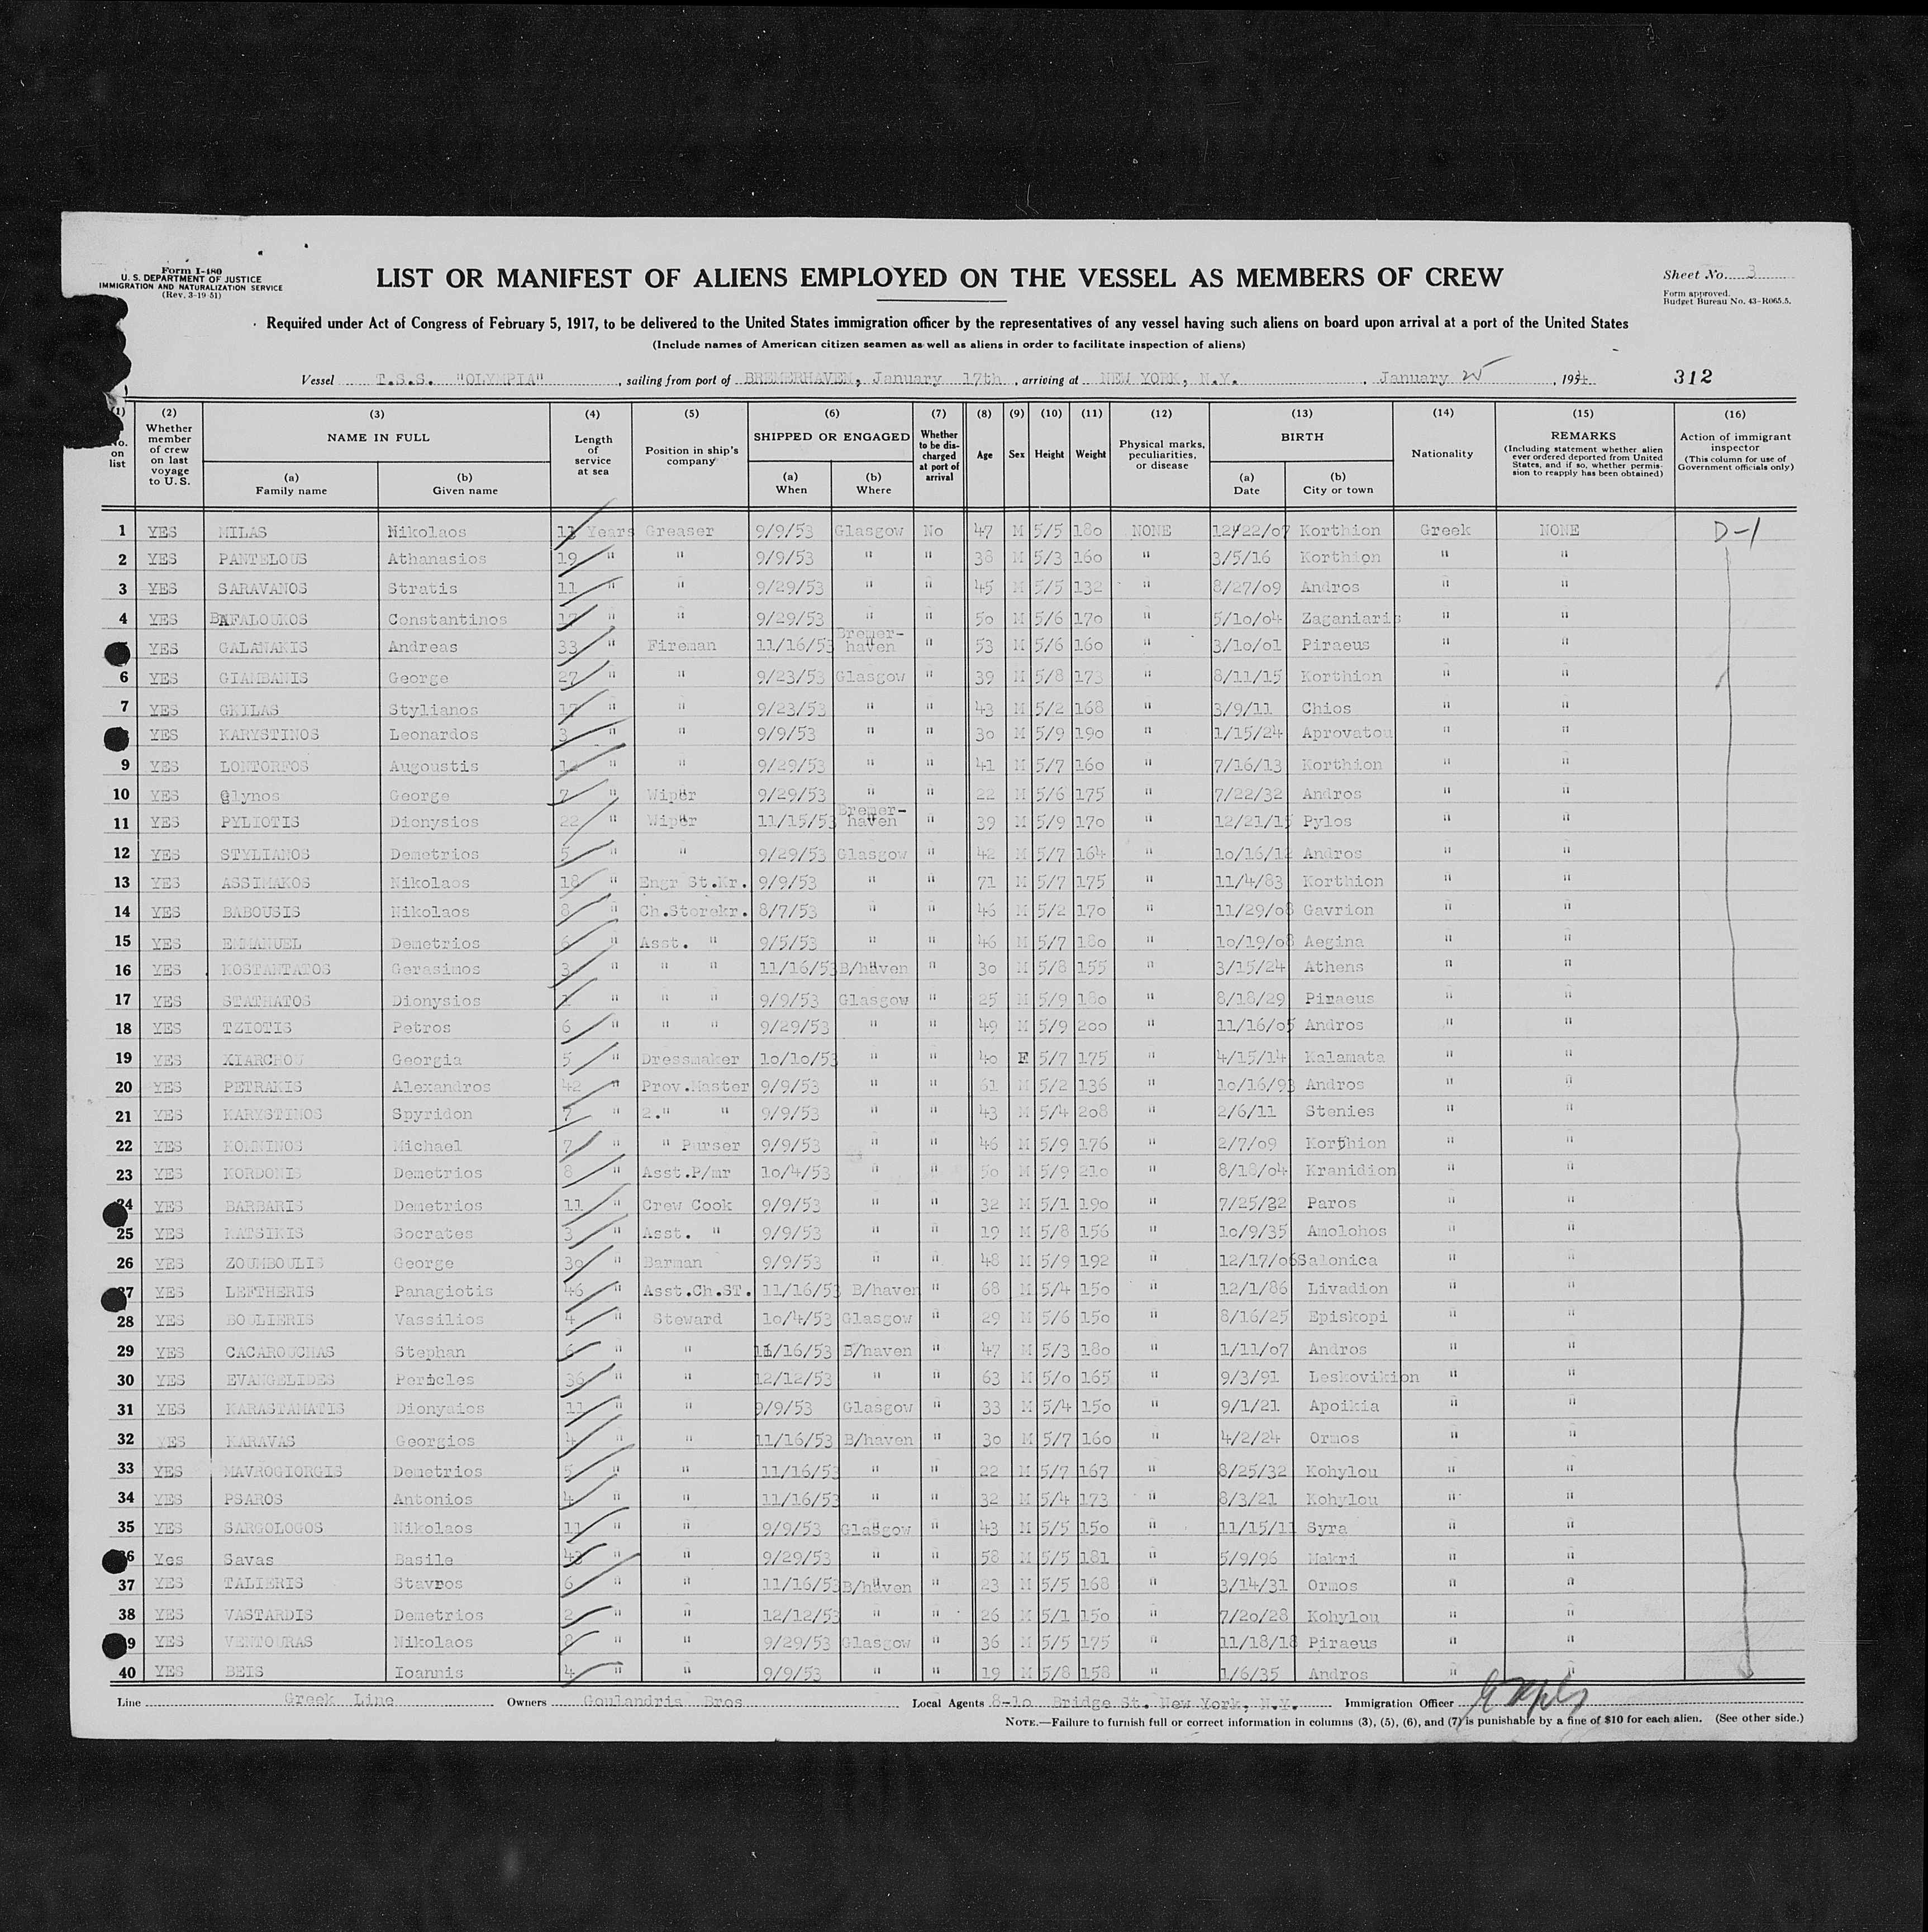 Form I-480
U. S. DEPARTMENT OF JUSTICE
IMMIGRATION AND NATURALIZATION SERVICE
(Rev. 3-19-51)
LIST OR MANIFEST OF ALIENS EMPLOYED ON THE VESSEL AS MEMBERS OF CREW
Sheet No. 3
Form approved.
Budget Bureau No. 43-R065.5.
Required under Act of Congress of February 5, 1917, to be delivered to the United States immigration officer by the representatives of any vessel having such aliens on board upon arrival at a port of the United States
(Include names of American citizen seamen as well as aliens in order to facilitate inspection of aliens)
Vessel T.S.S. "OLYMPIA", sailing from port of BREMERHAVEN, January 17th, arriving at NEW YORK, N.Y., January 25, 1954 312
(1) (2) (3) (4) (5) (6) (7) (8) (9) (10) (11) (12) (13) (14) (15) (16)
No. on list
Whether member of crew on last voyage to U.S.
NAME IN FULL
(a) Family name
(b) Given name
Length of service at sea
Position in ship's company
SHIPPED OR ENGAGED
(a) When
(b) Where
Whether to be discharged at port of arrival
Age
Sex
Height
Weight
Physical marks, peculiarities, or disease
BIRTH
(a) Date
(b) City or town
Nationality
REMARKS
(Including statement whether alien ever ordered deported from United States, and if so, whether permission to reapply has been obtained)
Action of immigrant inspector
(This column for use of Government officials only)
1 YES MILAS Nikolaos 11 Years Greaser 9/9/53 Glasgow No 47 M 5/5 180 NONE 12/22/07 Korthion Greek NONE D-1
2 YES PANTELOUS Athanasios 19 " " 9/9/53 " " 38 M 5/3 160 " 3/5/16 Korthion " "
3 YES SARAVANOS Stratis 11 " " 9/29/53 " " 45 M 5/5 132 " 8/27/09 Andros " "
4 YES BAFALOUKOS Constantinos 17 " " 9/29/53 " " 50 M 5/6 170 " 5/10/04 Zaganiaris " "
YES GALANAKIS Andreas 33 " Fireman 11/16/53 Bremer-haven " 53 M 5/6 160 " 3/10/01 Piraeus " "
6 YES GIAMBANIS George 27 " " 9/23/53 Glasgow " 39 M 5/8 173 " 8/11/15 Korthion " "
7 YES GKILAS Stylianos 17 " " 9/23/53 " " 43 M 5/2 168 " 3/9/11 Chios " "
YES KARYSTINOS Leonardos 3 " " 9/9/53 " " 30 M 5/9 190 " 1/15/24 Aprovatou " "
9 YES LONTORFOS Augoustis " " 9/29/53 " " 41 M 5/7 160 " 7/16/13 Korthion " "
10 YES Glynos George 7 " Wiper 9/29/53 " " 22 M 5/6 175 " 7/22/32 Andros " "
11 YES PYLIOTIS Dionysios 22 " Wiper 11/15/53 Bremer-haven " 39 M 5/9 170 " 12/21/15 Pylos " "
12 YES STYLIANOS Demetrios 5 " " 9/29/53 Glasgow " 42 M 5/7 164 " 10/16/12 Andros " "
13 YES ASSIMAKOS Nikolaos 18 " Engr St.Kr. 9/9/53 " " 71 M 5/7 175 " 11/4/83 Korthion " "
14 YES BABOUSIS Nikolaos 8 " Ch.Storekr. 8/7/53 " " 46 M 5/2 170 " 11/29/08 Gavrion " "
15 YES EMMANUEL Demetrios 6 " Asst. " 9/5/53 " " 46 M 5/7 180 " 10/19/08 Aegina " "
16 YES KOSTANTATOS Gerasimos 3 " " " 11/16/53 B/haven " 30 M 5/8 155 " 3/15/24 Athens " "
17 YES STATHATOS Dionysios 1 " " " 9/9/53 Glasgow " 25 M 5/9 180 " 8/18/29 Piraeus " "
18 YES TZIOTIS Petros 6 " " " 9/29/53 " " 49 M 5/9 200 " 11/16/05 Andros " "
19 YES XIARCHOU Georgia 5 " Dressmaker 10/10/53 " " 40 F 5/7 175 " 4/15/14 Kalamata " "
20 YES PETRAKIS Alexandros 42 " Prov.Master 9/9/53 " " 61 M 5/2 136 " 10/16/93 Andros " "
21 YES KARYSTINOS Spyridon 7 " 2." " 9/9/53 " " 43 M 5/4 208 " 2/6/11 Stenies " "
22 YES KOMNINOS Michael 7 " " Purser 9/9/53 " " 46 M 5/9 176 " 2/7/09 Korthion " "
23 YES KORDONIS Demetrios 8 " Asst.P/mr 10/4/53 " " 50 M 5/9 210 " 8/18/04 Kranidion " "
24 YES BARBARIS Demetrios 11 " Crew Cook 9/9/53 " " 32 M 5/1 190 " 7/25/22 Paros " "
25 YES KATSIKIS Socrates 3 " Asst. " 9/9/53 " " 19 M 5/8 156 " 10/9/35 Amolohos " "
26 YES ZOUMBOULIS George 30 " Barman 9/9/53 " " 48 M 5/9 192 " 12/17/06 Salonica " "
27 YES LEFTHERIS Panagiotis 46 " Asst.Ch.ST. 11/16/53 B/haven " 68 M 5/4 150 " 12/1/86 Livadion " "
28 YES BOULIERIS Vassilios 4 " Steward 10/4/53 Glasgow " 29 M 5/6 150 " 8/16/25 Episkopi " "
29 YES CACAROUCHAS Stephan 6 " " 11/16/53 B/haven " 47 M 5/3 180 " 1/11/07 Andros " "
30 YES EVANGELIDES Pericles 36 " " 12/12/53 " " 63 M 5/0 165 " 9/3/91 Leskovikion " "
31 YES KARASTAMATIS Dionyaios 11 " " 9/9/53 Glasgow " 33 M 5/4 150 " 9/1/21 Apoikia " "
32 YES KARAVAS Georgios 4 " " 11/16/53 B/haven " 30 M 5/7 160 " 4/2/24 Ormos " "
33 YES MAVROGIORGIS Demetrios 5 " " 11/16/53 " " 22 M 5/7 167 " 8/25/32 Kohylou " "
34 YES PSAROS Antonios 4 " " 11/16/53 " " 32 M 5/4 173 " 8/3/21 Kohylou " "
35 YES SARGOLOGOS Nikolaos 11 " " 9/9/53 Glasgow " 43 M 5/5 150 " 11/15/11 Syra " "
36 Yes Savas Basile 43 " " 9/29/53 " " 58 M 5/5 181 " 5/9/96 Makri " "
37 YES TALIERIS Stavros 6 " " 11/16/53 B/haven " 23 M 5/5 168 " 3/14/31 Ormos " "
38 YES VASTARDIS Demetrios 2 " " 12/12/53 " " 26 M 5/1 150 " 7/20/28 Kohylou " "
39 YES VENTOURAS Nikolaos 8 " " 9/29/53 Glasgow " 36 M 5/5 175 " 11/18/18 Piraeus " "
40 YES BEIS Ioannis 4 " " 9/9/53 " " 19 M 5/8 158 " 1/6/35 Andros " "
Line Greek Line Owners Goulandris Bros Local Agents 8-10 Bridge St. New York, N.Y. Immigration Officer
NOTE.—Failure to furnish full or correct information in columns (3), (5), (6), and (7) is punishable by a fine of $10 for each alien. (See other side.)